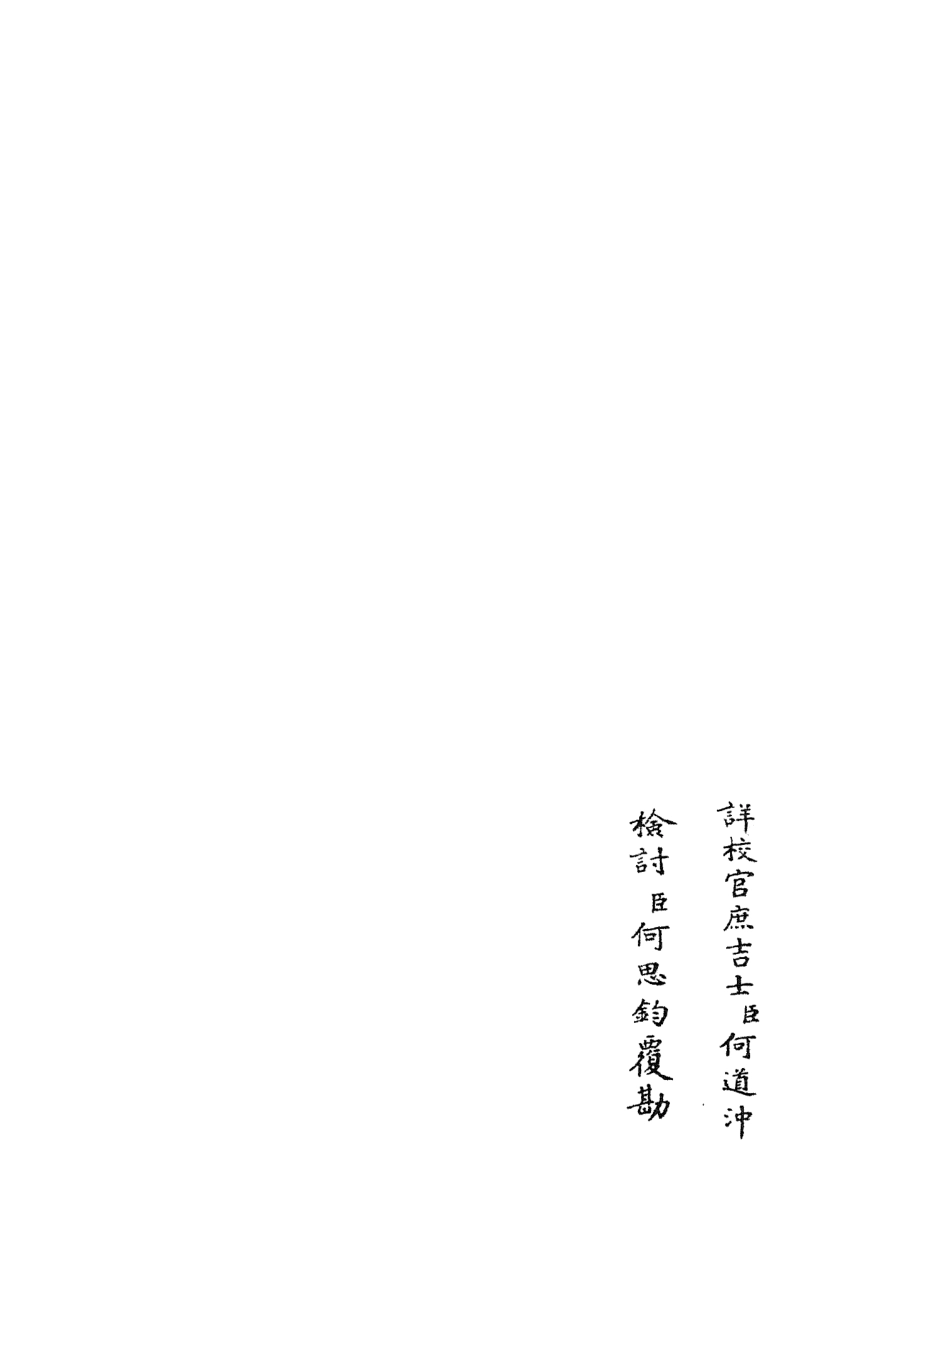 詳校官庶吉士臣何道沖
檢討臣何思鈞覆勘